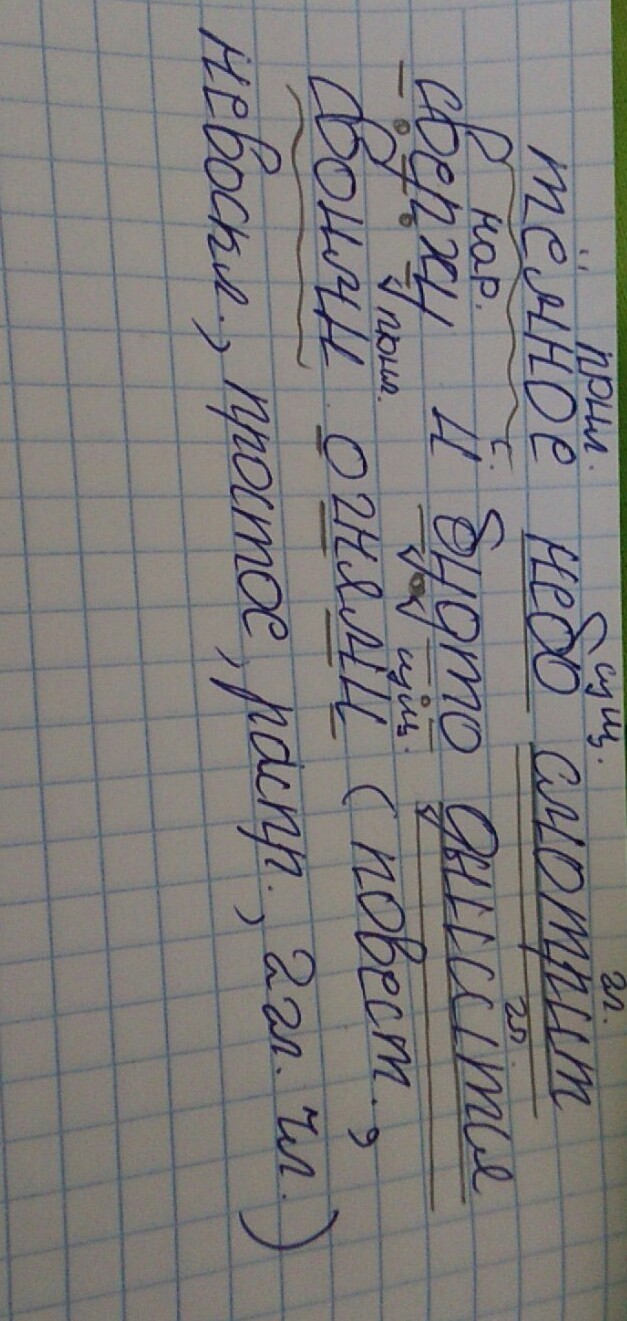 прил. сущ. гл.
тёмное небо смотрит
нар. с. гл.
сверху и будто
прил. сущ.
своими огнями (повест.,
невоскл., простое, распр., 2 гл. чл.)